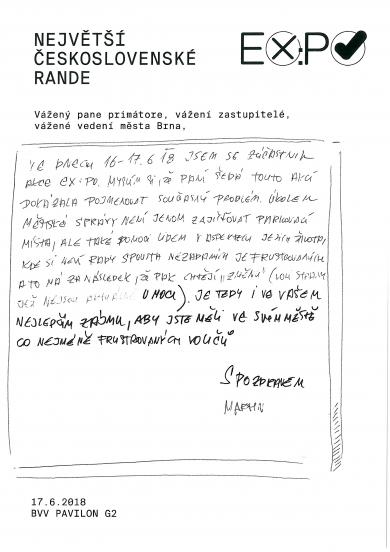 NEJVĚTŠÍ
ČESKOSLOVENSKÉ
RANDE
EX:PO
Vážený pane primátore, vážení zastupitelé,
vážené vedení města Brna,
VE DNECH 16-17.6 18 JSEM SE ZÚČASTNIL
AKCE EX:PO. MYSLÍM SI, ŽE PANÍ ŠEDÁ TOUTO AKCÍ
DOKÁZALA POJMENOVAT SOUČASNÝ PROBLÉM. ÚKOLEM
MĚSTSKÉ SPRÁVY NENÍ JENOM ZAJIŠŤOVAT PARKOVACÍ
MÍSTA, ALE TAKÉ POMOCI LIDEM V ASPEKTECH JEJICH ŽIVOTA,
KDE SI NEVÍ RADY SPOUSTA NEZADANÝCH JE FRUSTROVANÝCH
A TO MÁ ZA NÁSLEDEK, ŽE PAK CHTĚJÍ "ZMĚNU" (VOLÍ STRANY
JEŽ NEJSOU AKTUÁLNĚ U MOCI). JE TEDY I VE VAŠEM
NEJLEPŠÍM ZÁJMU, ABY JSTE MĚLI VE SVÉM MĚSTĚ
CO NEJMÉNĚ FRUSTROVANÝCH VOLIČŮ
S POZDRAVEM
17.6.2018
BVV PAVILON G2